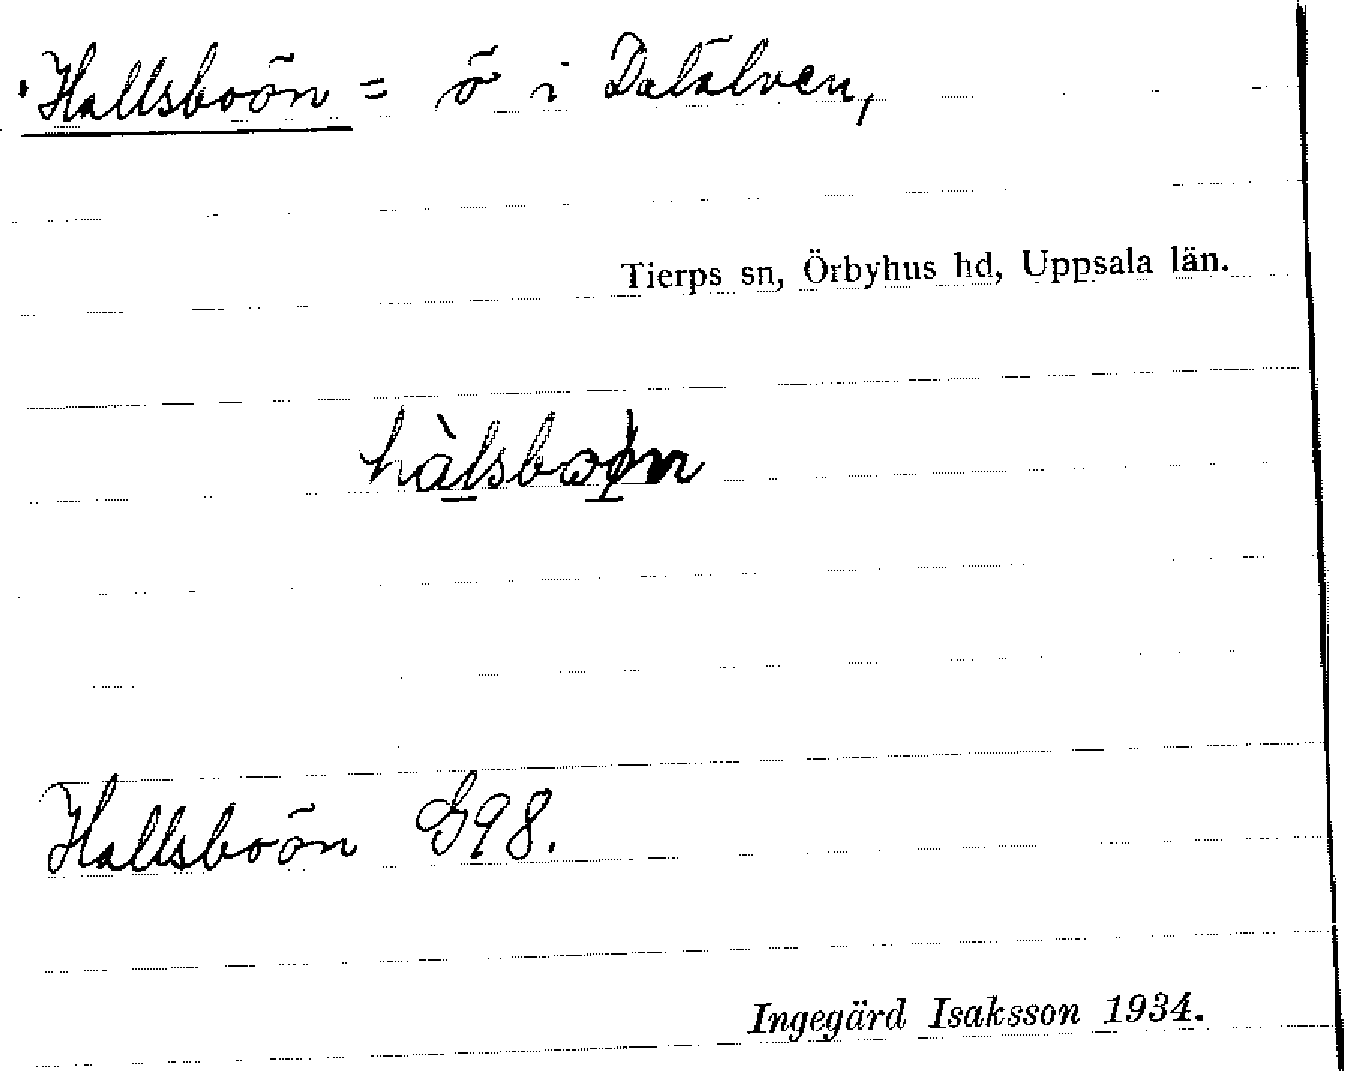 Hallsboön = ö i Dalälven,
Tierps sn, Örbyhus hd, Uppsala län.
hàlsboøn
Hallsboön G98.
Ingegärd Isaksson 1934.